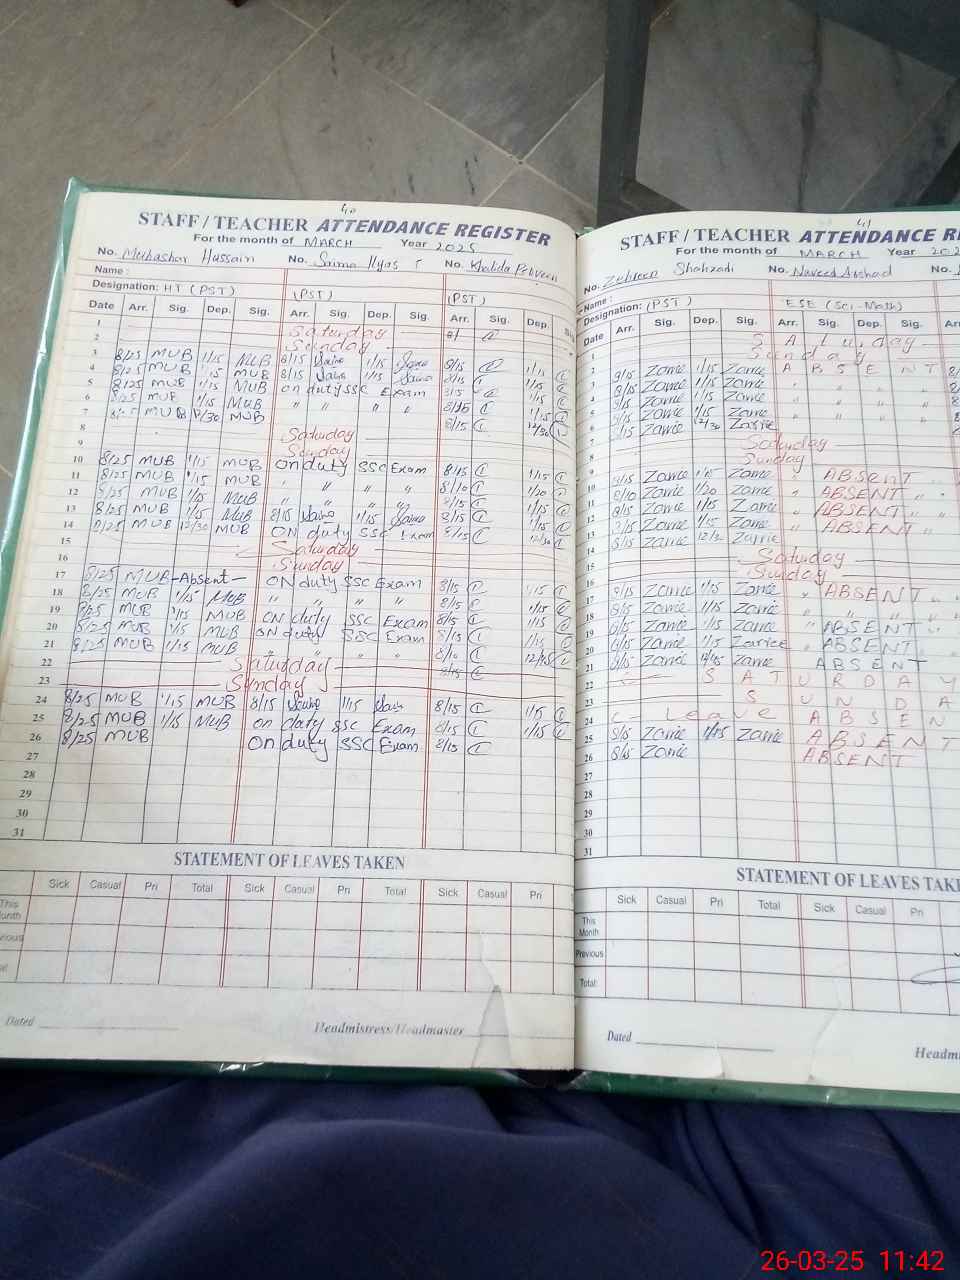 40
STAFF / TEACHER ATTENDANCE REGISTER
For the month of MARCH Year 2025
No. Mubashar Hussain No. Saima Ilyas No. Khalida Perveen
Name :
Designation: HT (PST) (PST) (PST)
Date Arr. Sig. Dep. Sig. Arr. Sig. Dep. Sig. Arr. Sig. Dep.
1 Saturday
2 Sunday
3 8/25 MUB 1/15 MUB 8/15 Saima 1/15 Saima 8/15 1/15
4 8/25 MUB 1/15 MUB 8/15 Saima 1/15 Saima 8/15 1/15
5 8/25 MUB 1/15 MUB on duty SSC Exam 8/15 1/15
6 8/25 MUB 1/15 MUB " " " " 8/25 1/15
7 MUB 12/30 MUB 8/15 12/30
8 Saturday
Sunday
10 8/25 MUB 1/15 MUB on duty SSC Exam 8/15 1/15
11 8/25 MUB 1/15 MUB " " " 8/10 1/20
12 8/25 MUB 1/15 MUB " " " 8/15 1/15
13 8/25 MUB 1/15 MUB 8/15 Saima 1/15 Saima 8/15 1/15
14 8/25 MUB 12/30 MUB ON duty SSC Exam 8/15 12/30
15 Saturday
16 Sunday
17 8/25 MUB -Absent- ON duty SSC Exam 8/15 1/15
18 8/25 MUB 1/15 MUB " " " " 8/15 1/15
19 8/25 MUB 1/15 MUB ON duty SSC Exam 8/15 1/15
20 8/25 MUB 1/15 MUB ON duty SSC Exam 8/15 1/15
21 8/25 MUB 1/15 MUB " " " 8/10
22 Saturday
23 Sunday 8/15
24 8/25 MUB 1/15 MUB 8/15 Saima 1/15 Saima 8/15 1/15
25 8/25 MUB 1/15 MUB on duty SSC Exam 8/15 1/15
26 8/25 MUB On duty SSC Exam 8/15
27
28
29
30
31
STATEMENT OF LEAVES TAKEN
Sick Casual Pri Total Sick Casual Pri Total Sick Casual Pri
This
Dated
Headmistress/Headmaster
41
STAFF / TEACHER ATTENDANCE RE
For the month of MARCH Year 202
No. Zubreen Shahzadi No. Naveed Arshad No.
Name :
Designation: (PST) ESE (Sci-Math)
Date Arr. Sig. Dep. Sig. Arr. Sig. Dep. Sig. Arr.
1 Saturday
2 Sunday
8/15 Zarrie 1/15 Zarrie ABSENT
4 8/15 Zarrie 1/15 Zarrie " " " "
5 8/15 Zarrie 1/15 Zarrie
6 8/15 Zarrie 1/15 Zarrie " " " "
7 8/15 Zarrie 12/30 Zarrie
Saturday
9 Sunday
10 8/15 Zarrie 1/15 Zarrie ABSENT
11 8/10 Zarrie 1/20 Zarrie " ABSENT " "
12 8/15 Zarrie 1/15 Zarrie " ABSENT " "
13 8/15 Zarrie 1/15 Zarrie " ABSENT " "
14 8/15 Zarrie Zarrie
15 Saturday
16 Sunday
17 8/15 Zarrie 1/15 Zarrie " ABSENT
18 8/15 Zarrie 1/15 Zarrie " " " "
19 8/15 Zarrie 1/15 Zarrie " ABSENT " "
20 8/15 Zarrie 1/15 Zarrie " ABSENT "
21 8/15 Zarrie Zarrie ABSENT
22 SATURDAY
23 SUNDA
24 C- Leave ABSEN
25 8/15 Zarrie 1/15 Zarrie ABSENT
26 8/15 Zarrie ABSENT
27
28
29
30
31
STATEMENT OF LEAVES TAKE
Sick Casual Pri Total Sick Casual Pri
This
Month
Previous
Total:
Dated
Headmi
26-03-25 11:42